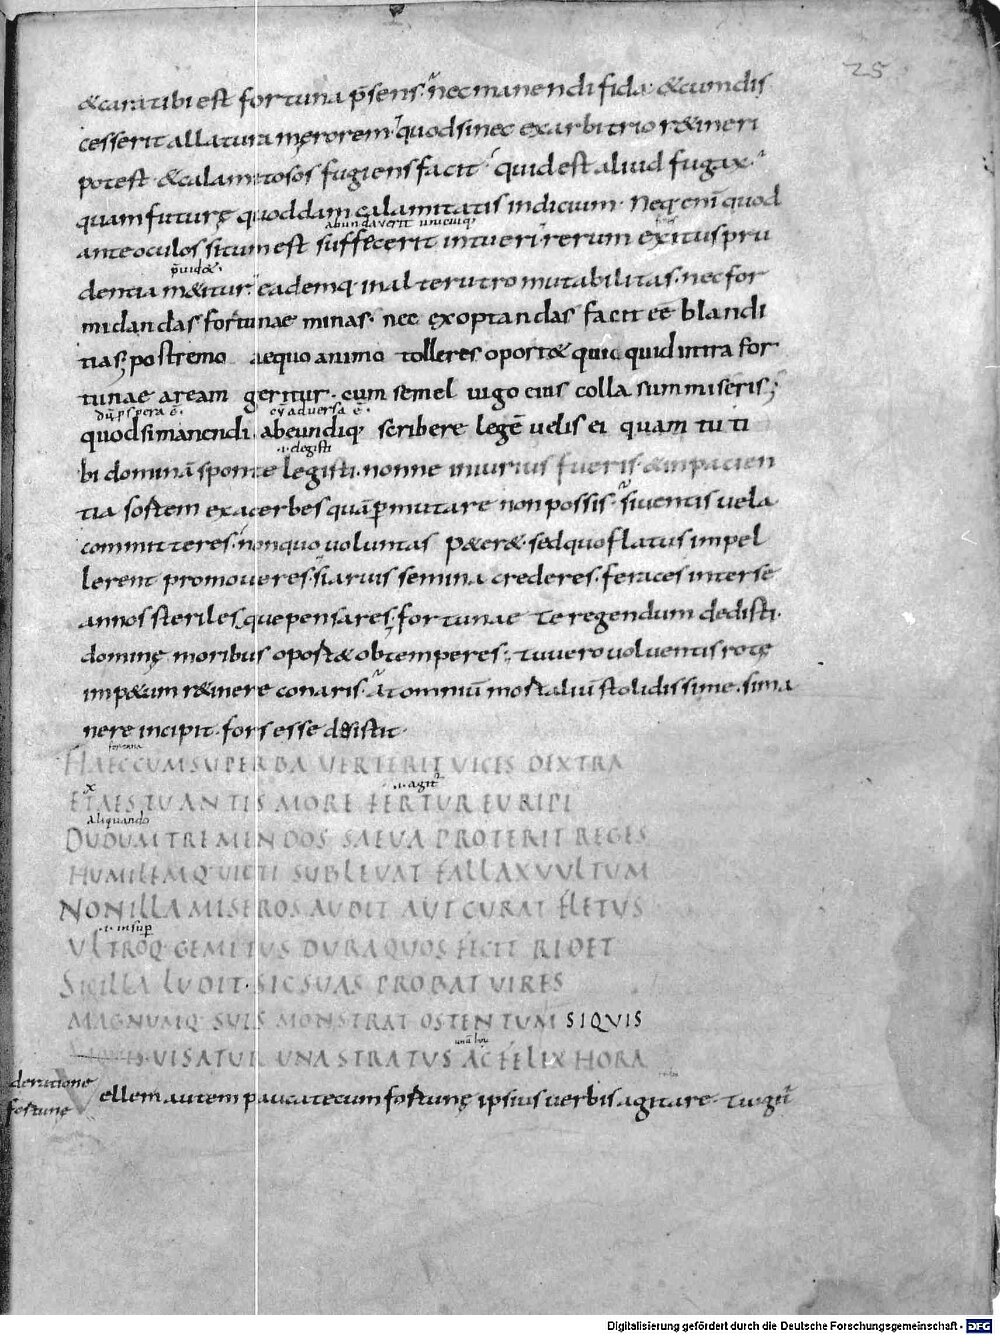 25
& cara tibi est fortuna p̄sens. nec manendi fida. & cum dis
cesserit allatura męrorem. quodsi nec ex arbitrio r&ineri
potest. & calamitosos fugiens facit. quid est aliud fugax.
quam futurę quoddam calamitatis indicium. Neq; enī quod
abundaverit unicuiq;
ante oculos situm est suffecerit intueri. rerum exitus pru
p̄uid&.
dentia m&itur. eademq; in alterutro mutabilitas. nec for
midandas fortunae minas. nec exoptandas facit eē blandi
tias; postremo aequo animo tolleres oport& quicquid intra for
tunae aream geritur. cum semel iugo eius colla summiseris;
quod si manendi. abeundiq; scribere legē uelis ei quam tu ti
.i. elegisti
bi dominā sponte legisti. nonne iniurius fueris. & inpacien
tia sortem exacerbes quā p̱mutare non possis. si uentis uela
committeres. non quo uoluntas p&er&. sed quo flatus impel
lerent promoueres. si aruis semina crederes. feraces inter se
annos sterilesque pensares. fortunae te regendum dedisti.
dominę moribus oport& obtemperes; tu uero uoluentis rotę
imp&um r&inere conaris. at omniū mortaliū stolidissime. si ma
nere incipit. fors esse desistit.
fortuna
HAEC CUM SUPERBA UERTERIT UICES DEXTRA
.i. agit̄
ET AESTUANTIS MORE FERTUR EURIPI
aliquando
DUDUM TREMENDOS SAEUA PROTERIT REGES
HUMILEMQ· UICTI SUBLEUAT FALLAX UULTUM
NON ILLA MISEROS AUDIT AUT CURAT FLETUS
.i. insup̱
ULTROQ· GEMITUS DURA QUOS FECIT RIDET
SIC ILLA LUDIT· SIC SUAS PROBAT UIRES
MAGNUMQ· SUIS MONSTRAT OSTENTUM SIQUIS
UISATUR UNA STRATUS AC FELIX HORA
de ratione
fortunę
Vellem autem pauca tecum fortunę ipsius uerbis agitare. tu igī
Digitalisierung gefördert durch die Deutsche Forschungsgemeinschaft - DFG